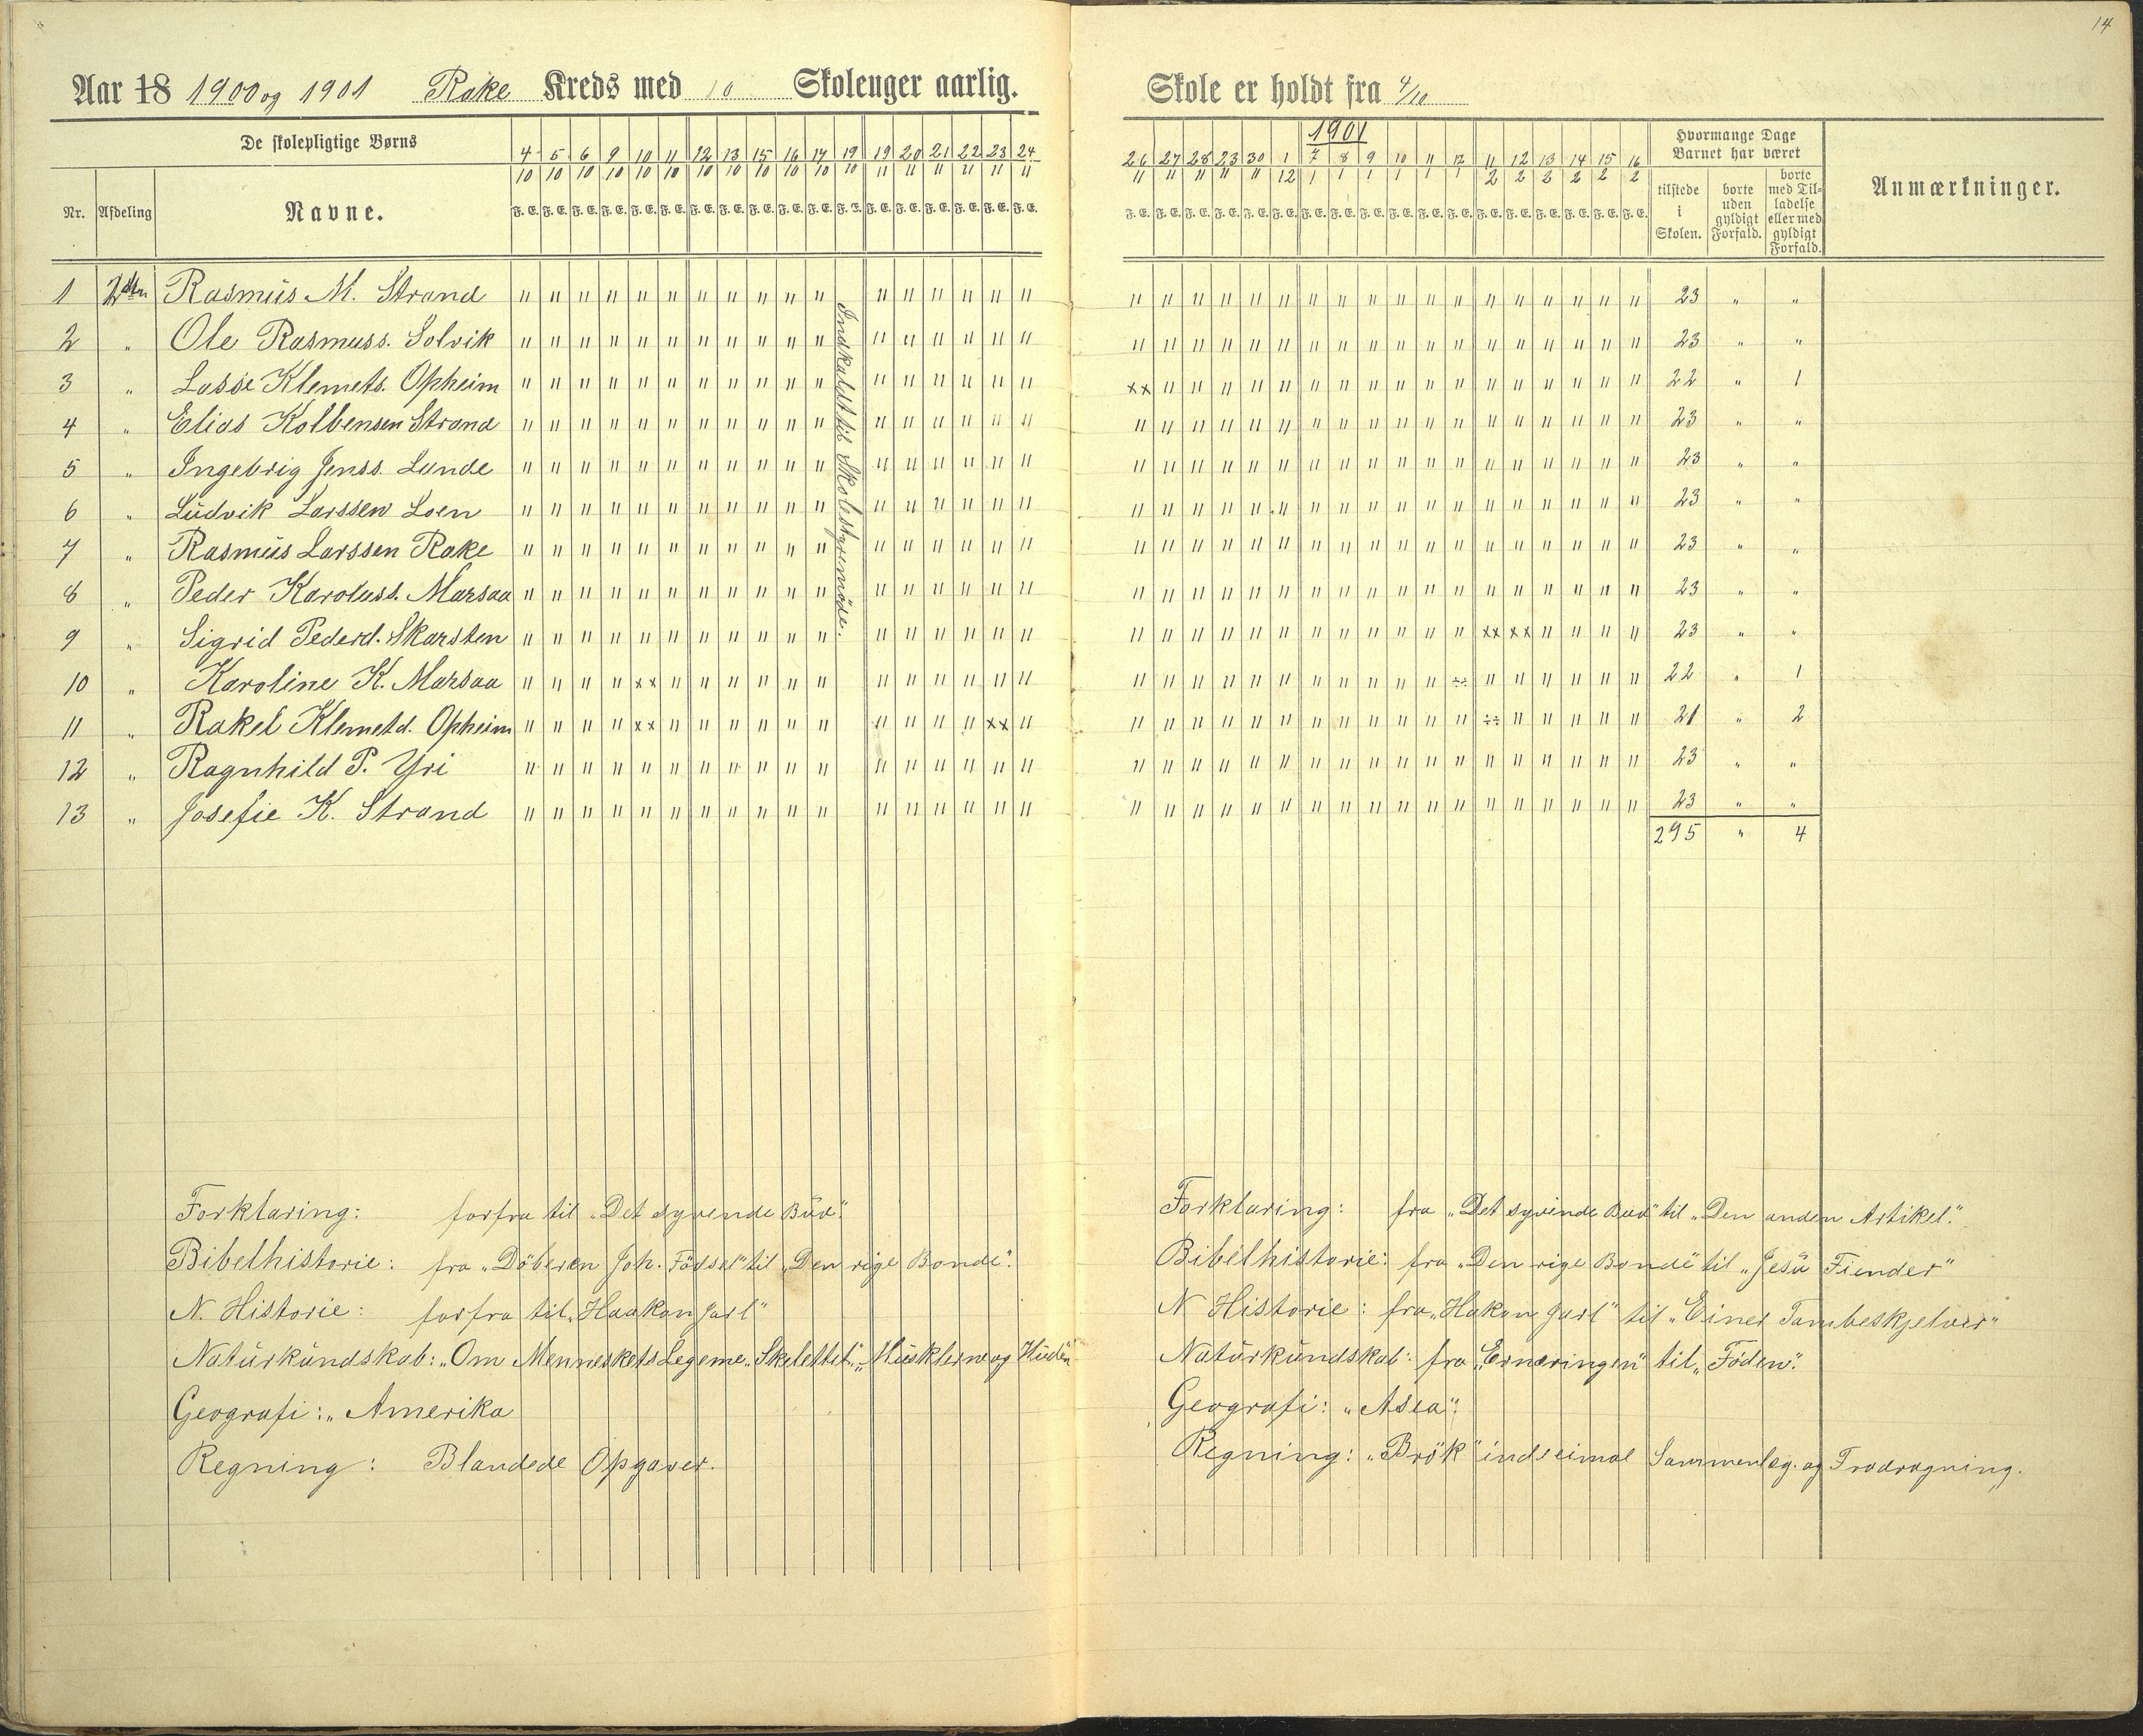 14
Aar 18 1900 og 1901 Rake Kreds med 10 Skoleuger aarlig.
De skolepligtige Børns
Nr. Afdeling Navne.
4/10 5/10 6/10 9/10 10/10 11/10 12/10 13/10 15/10 16/10 17/10 19/10 19/11 20/11 21/11 22/11 23/11 24/11
F. E. F. E. F. E. F. E. F. E. F. E. F. E. F. E. F. E. F. E. F. E. F. E. F. E. F. E. F. E. F. E. F. E. F. E.
1 2den Rasmus M. Strand
2 " Ole Rasmuss. Solvik
3 " Lasse Klemets. Opheim
4 " Elias Kolbensen Strand
5 " Ingebrig Jenss. Lunde
6 " Ludvik Larssen Loen
7 " Rasmus Larssen Rake
8 " Peder Karoluss. Marsaa
9 " Sigrid Pederd. Skarsten
10 " Karoline K. Marsaa
11 " Rakel Klemetd. Opheim
12 " Ragnhild P. Yri
13 " Josefie K. Strand
Indkaldt til Skolestyremöde.
Forklaring: forfra til "Det syvende Bud".
Bibelhistorie: fra "Döberen Joh. Födsel" til "Den rige Bonde".
N. Historie: forfra til "Haakon Jarl"
Naturkundskab: "Om Menneskets Legeme "Skelettet", "Musklerne og Huden
Geografi: "Amerika
Regning: Blandede Opgaver.
Skole er holdt fra 4/10
1901
26/11 27/11 28/11 23/11 30/11 1/12 7/1 8/1 9/1 10/1 11/1 12/1 11/2 12/2 13/2 14/2 15/2 16/2
F. E. F. E. F. E. F. E. F. E. F. E. F. E. F. E. F. E. F. E. F. E. F. E. F. E. F. E. F. E. F. E. F. E. F. E.
Hvormange Dage Barnet har været
tilstede i Skolen.
borte uden gyldigt Forfald.
borte med Tilladelse eller med gyldigt Forfald.
Anmærkninger.
23 " "
23 " "
22 " 1
23 " "
23 " "
23 " "
23 " "
23 " "
23 " "
22 " 1
21 " 2
23 " "
23 " "
295 " 4
Forklaring: fra "Det syvinde Bud" til "Den anden Artikel".
Bibelhistorie: fra "Den rige Bonde" til "Jesu Fiender"
N Historie: fra "Hakon Jarl" til "Einer Tambeskjelver"
Naturkundskab: fra "Ernæringen" til "Föden".
Geografi: "Asea".
Regning: "Brök" i Sammenlæg. og Fradragning.